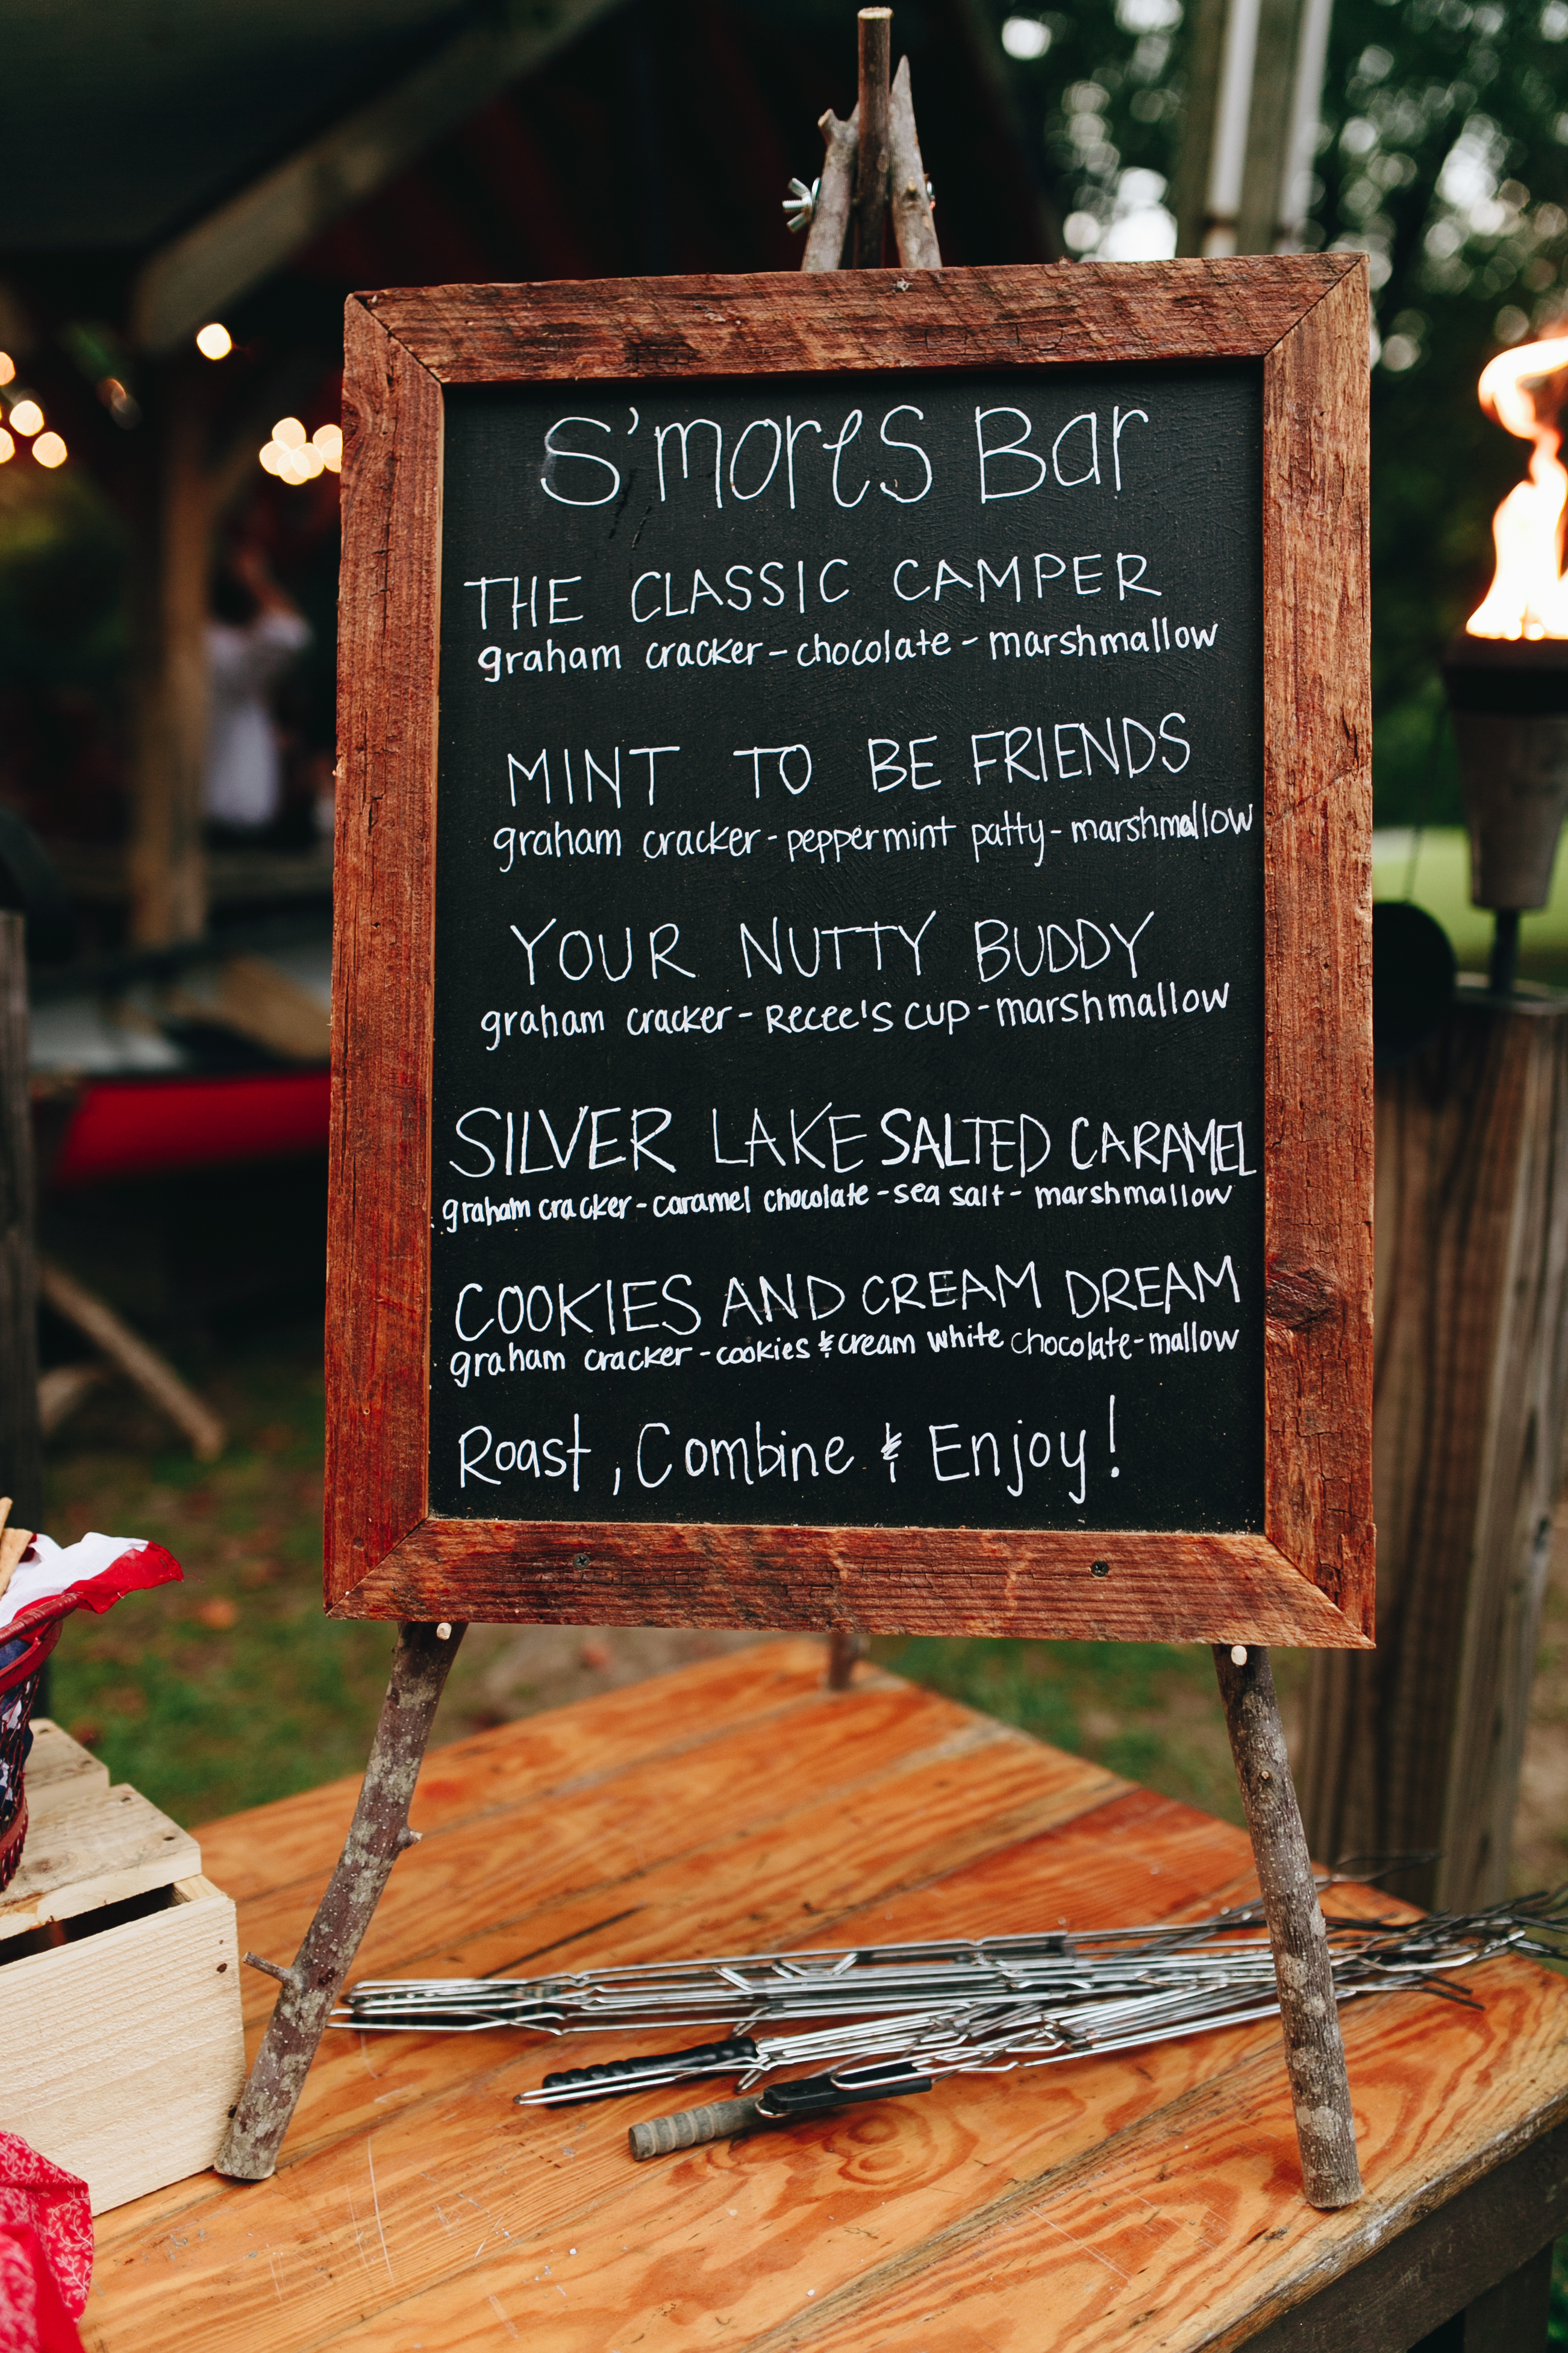 S'mores Bar
THE CLASSIC CAMPER
graham cracker - chocolate - marshmallow
MINT TO BE FRIENDS
graham cracker - peppermint patty - marshmallow
YOUR NUTTY BUDDY
graham cracker - Recee's cup - marshmallow
SILVER LAKE SALTED CARAMEL
graham cracker - caramel chocolate - sea salt - marshmallow
COOKIES AND CREAM DREAM
graham cracker - cookies & cream white chocolate - mallow
Roast, Combine & Enjoy!